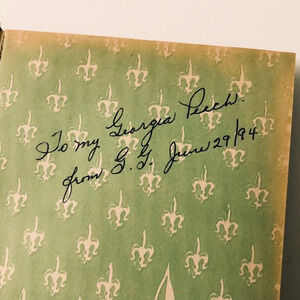 To my Georgia Peech.
from G.G. June 29/94